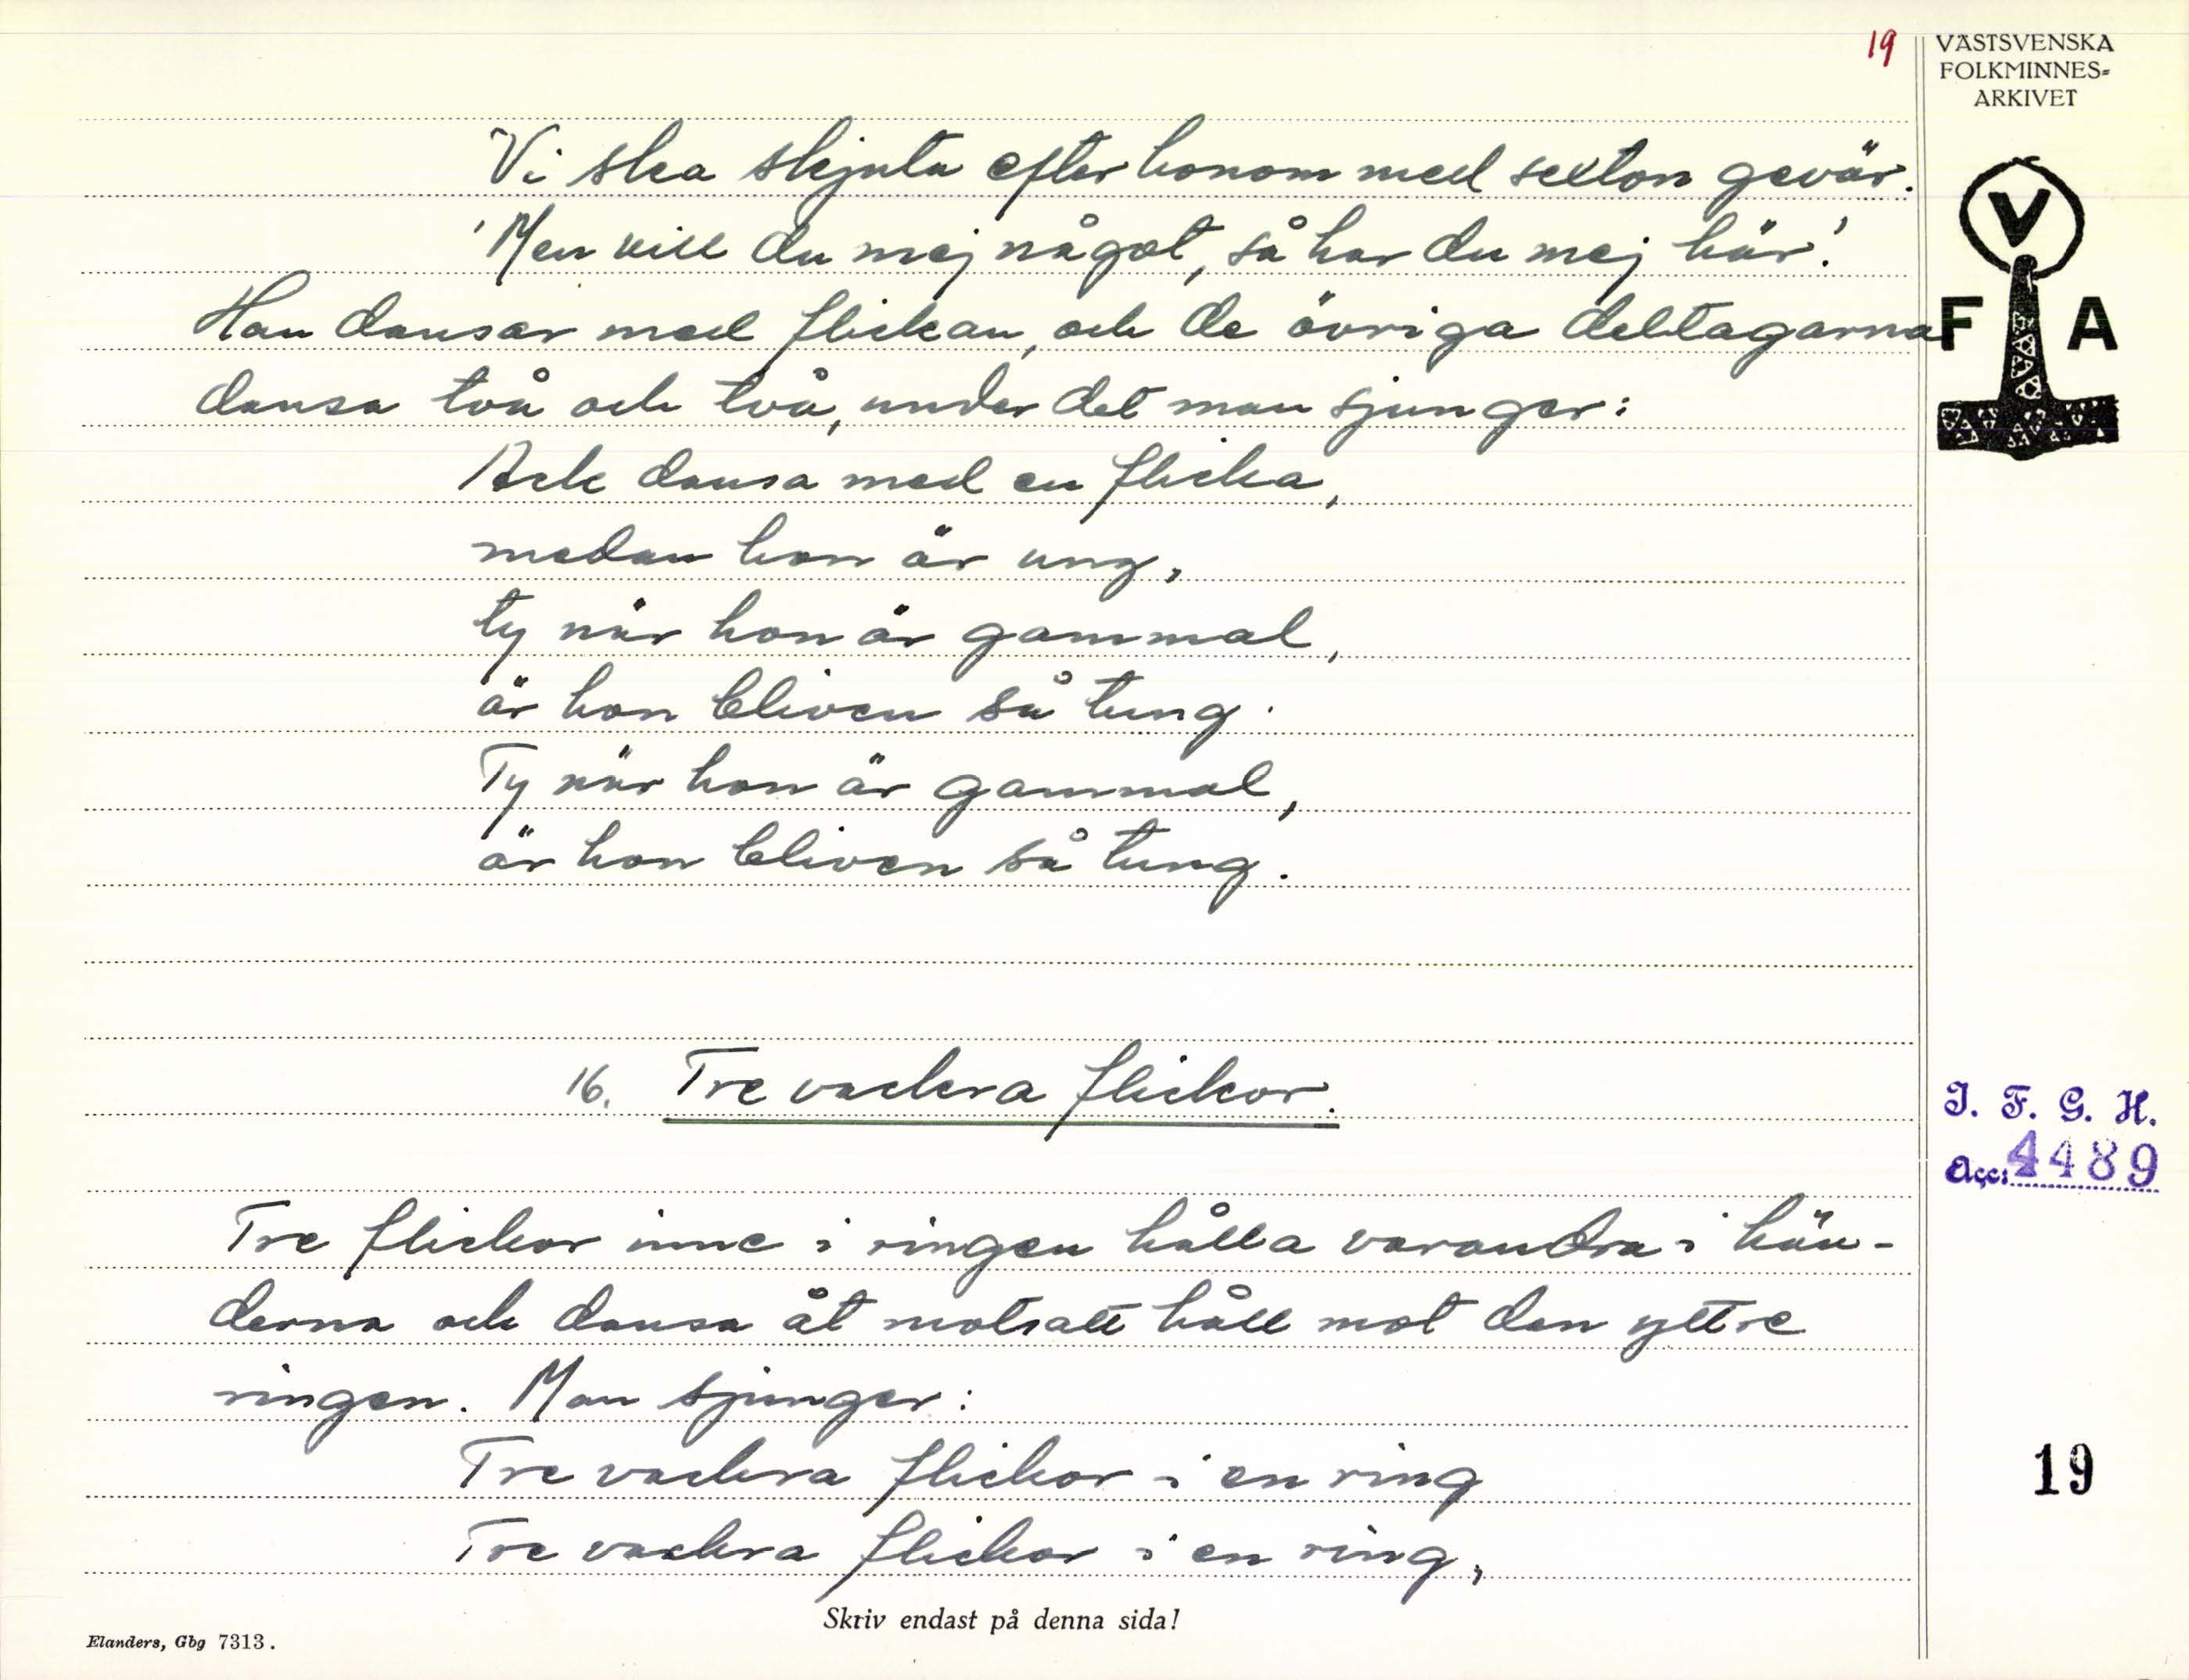 19
VÄSTSVENSKA
FOLKMINNES-
ARKIVET
Vi ska skjuta efter honom med sexton gevär.
'Men vill du mej något, så har du mej här.'
Han dansar med flickan, och de övriga deltagarna
dansa två och två, under det man sjunger:
Ack dansa med en flicka,
medan hon är ung,
ty när hon är gammal,
är hon bliven så tung.
Ty när hon är gammal,
är hon bliven så tung.
V
F A
16. Tre vackra flickor.
I. F. G. H.
Acc: 4489
Tre flickor inne i ringen hålla varandra i hän-
derna och dansa åt motsatt håll mot den yttre
ringen. Man sjunger:
Tre vackra flickor i en ring
Tre vackra flickor i en ring,
19
Skriv endast på denna sida!
Elanders, Gbg 7313.